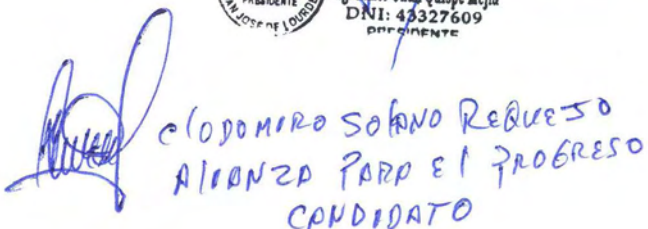 PRESIDENTE
SAN JOSE DE LOURDE
Quispe Mejía
DNI: 43327609
PRESIDENTE
Clodomiro Solano Requejo
Alianza Para El Progreso
Candidato